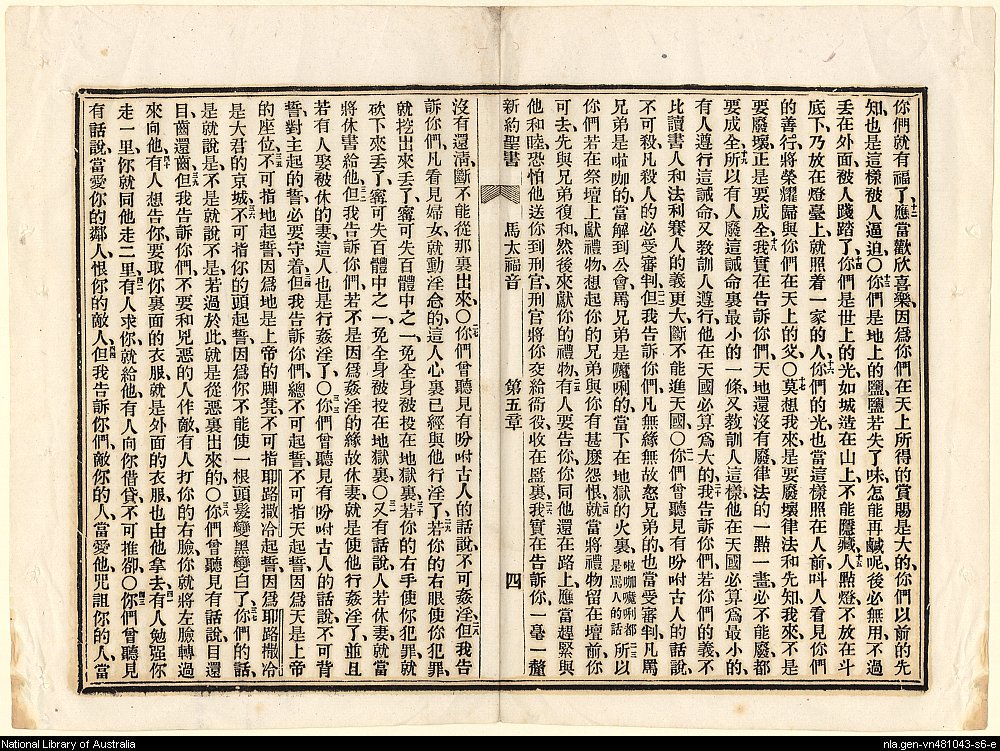 你們就有福了、十二應當歡欣喜樂、因爲你們在天上所得的賞賜是大的、你們以前的先
知、也是這樣被人逼迫○十三你們是地上的鹽、鹽若失了味、怎能再鹹呢、後必無用、不過
丟在外面、被人踐踏了、十四你們是世上的光、如城造在山上、不能隱藏、十五人點燈、不放在斗
底下、乃放在燈臺上、就照着一家的人、十六你們的光、也當這樣照在人前、叫人看見你們
的善行、將榮耀歸與你們在天上的父○十七莫想我來是要廢壞律法和先知、我來不是
要廢壞、正是要成全、十八我實在告訴你們、天地還沒有廢、律法的一點一畫、必不能廢、都
要成全、十九所以有人廢這誡命裏最小的一條、又敎訓人這樣、他在天國必算爲最小的、
有人遵行這誡命、又敎訓人遵行、他在天國必算爲大的、二十我告訴你們、你們的義不
比讀書人和法利賽人的義更大、斷不能進天國○二一你們曾聽見有吩咐古人的話說、
不可殺凡殺人的必受審判、二二但我告訴你們、凡無緣無故怒兄弟的、也當受審判、凡罵
兄弟是啦咖的、當解到公會、罵兄弟是魔唎的、當下在地獄的火裏、啦咖魔唎都是罵人的話二三所以
你們若在祭壇上獻禮物、想起你的兄弟與你有甚麼怨恨、二四就當將禮物留在壇前、你
可去先與兄弟復和、然後來獻你的禮物、二五有人要告你、你同他還在路上、應當趕緊與
他和睦、恐怕他送你到刑官、刑官將你交給衙役、收在監裏、二六我實在告訴你、一毫一釐
新約聖書 馬太福音 第五章 四
沒有還淸、斷不能從那裏出來○二七你們曾聽見有吩咐古人的話說、不可姦淫、二八但我告
訴你們、凡看見婦女就動淫念的、這人心裏已經與他行淫了、二九若你的右眼使你犯罪、
就挖出來丟了、寧可失百體中之一、免全身被投在地獄裏、三十若你的右手使你犯罪、就
砍下來丟了、寧可失百體中之一、免全身被投在地獄裏○三一又有話說、人若休妻、就當
將休書給他、三二但我告訴你們、若不是因爲姦淫的緣故休妻、就是使他行姦淫了、並且
若有人娶被休的妻、這人也是行姦淫了○三三你們曾聽見有吩咐古人的話說、不可背
誓、對主起的誓、必要守着、三四但我告訴你們、總不可起誓、不可指天起誓、因爲天是上帝
的座位、三五不可指地起誓、因爲地是上帝的脚凳、不可指耶路撒冷起誓、因爲耶路撒冷
是大君的京城、三六不可指你的頭起誓、因爲你不能使一根頭髮變黑變白了、三七你們的話、
是就說是、不是就說不是、若過於此、就是從惡裏出來的○三八你們曾聽見有話說、目還
目、齒還齒、三九但我告訴你們、不要和兇惡的人作敵、有人打你的右臉、你就將左臉轉過
來向他、四十有人想告你、要取你裏面的衣服、就是外面的衣服、也由他拿去、四一有人勉强你
走一里、你就同他走二里、四二有人求你、就給他、有人向你借貸、不可推卻○四三你們曾聽見
有話說、當愛你的鄰人、恨你的敵人、四四但我告訴你們、敵你的人、當愛他、咒詛你的人、當
National Library of Australia
nla.gen-vn481043-s6-e